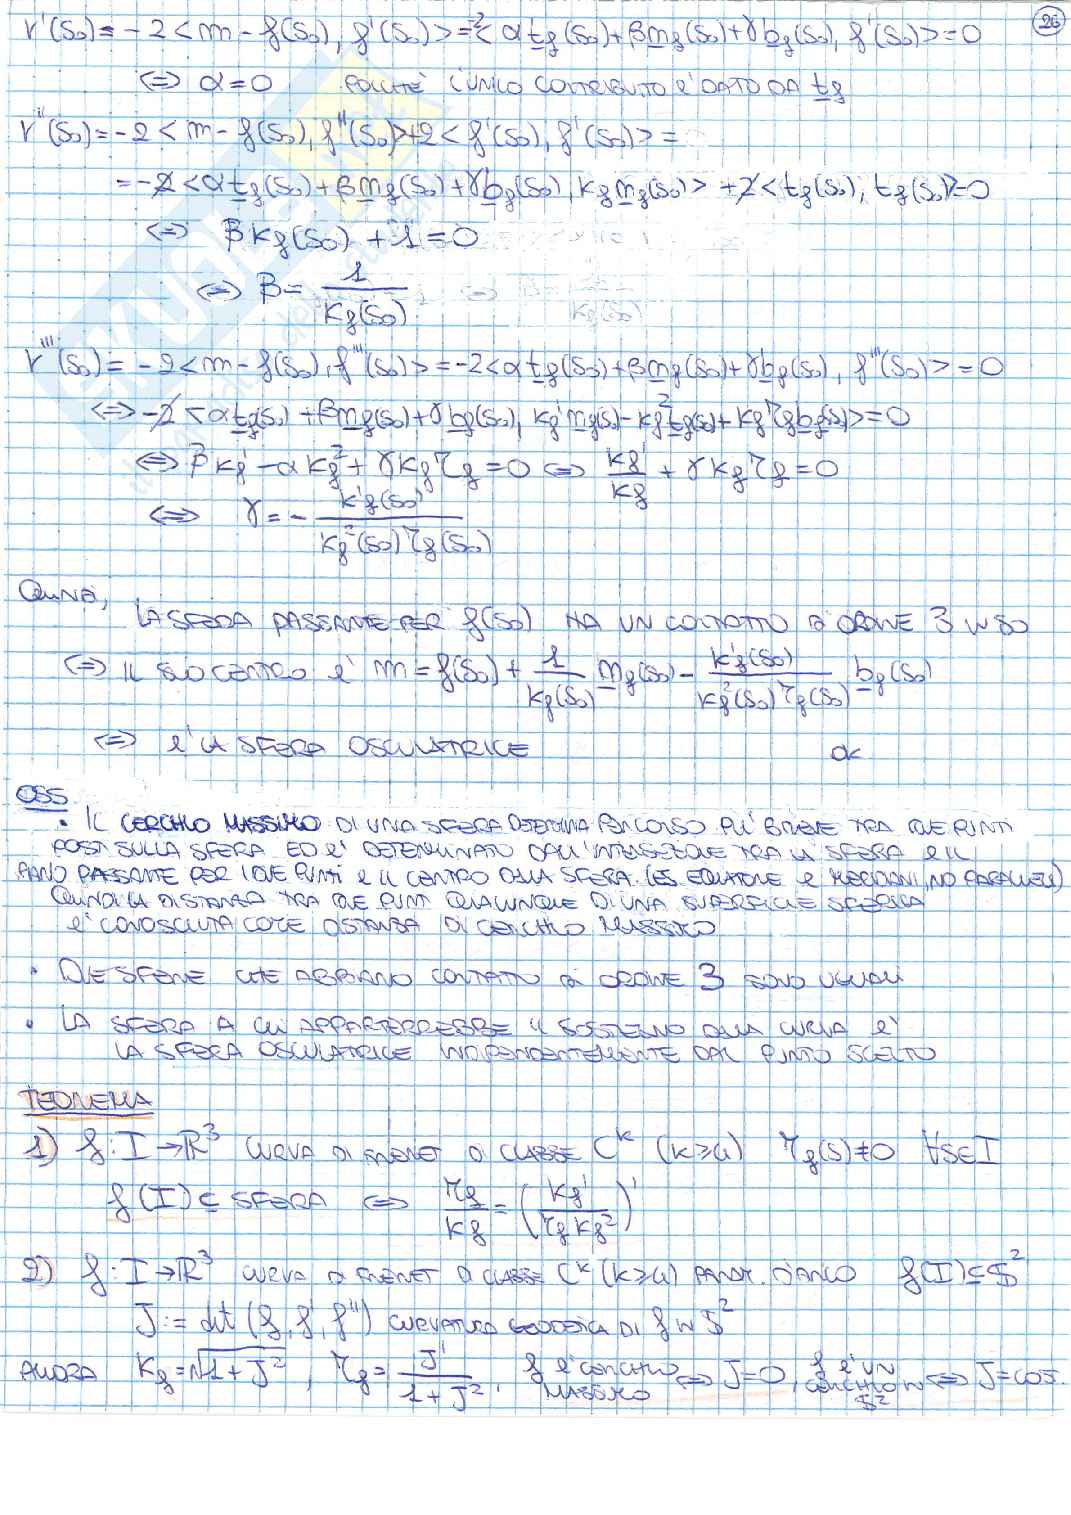 26
r'(s₀) = -2 < m - f(s₀), f'(s₀) > = -2 < α t_f(s₀) + β n_f(s₀) + γ b_f(s₀), f'(s₀) > = 0
⇔ α = 0 POICHÈ L'UNICO CONTRIBUTO È DATO DA t_f
r''(s₀) = -2 < m - f(s₀), f''(s₀) > + 2 < f'(s₀), f'(s₀) > =
= -2 < α t_f(s₀) + β n_f(s₀) + γ b_f(s₀), k_f n_f(s₀) > + 2 < t_f(s₀), t_f(s₀) > = 0
⇔ β k_f(s₀) + 1 = 0
⇔ β = 1 / k_f(s₀)
r'''(s₀) = -2 < m - f(s₀), f'''(s₀) > = -2 < α t_f(s₀) + β n_f(s₀) + γ b_f(s₀), f'''(s₀) > = 0
⇔ -2 < α t_f(s₀) + β n_f(s₀) + γ b_f(s₀), k_f' n_f(s₀) - k_f² t_f(s₀) + k_f τ_f b_f(s₀) > = 0
⇔ β k_f' - α k_f² + γ k_f τ_f = 0 ⇔ k_f' / k_f + γ k_f τ_f = 0
⇔ γ = - k_f'(s₀) / k_f²(s₀) τ_f(s₀)
QUINDI,
LA SFERA PASSANTE PER f(s₀) HA UN CONTATTO DI ORDINE 3 IN s₀
⇔ IL SUO CENTRO È m = f(s₀) + 1 / k_f(s₀) n_f(s₀) - k_f'(s₀) / k_f²(s₀) τ_f(s₀) b_f(s₀)
⇔ È LA SFERA OSCULATRICE ok
OSS
• IL CERCHIO MASSIMO DI UNA SFERA DETERMINA PERCORSO PIÙ BREVE TRA DUE PUNTI
POSTI SULLA SFERA ED È DETERMINATO DALL'INTERSEZIONE TRA LA SFERA E IL
PIANO PASSANTE PER I DUE PUNTI E IL CENTRO DELLA SFERA. (ES EQUATORE E MERIDIANI, NO PARALLELI)
QUINDI LA DISTANZA TRA DUE PUNTI QUALUNQUE DI UNA SUPERFICIE SFERICA
È CONOSCIUTA COME DISTANZA DI CERCHIO MASSIMO
• DUE SFERE CHE ABBIANO CONTATTO DI ORDINE 3 SONO UGUALI
• LA SFERA A CUI APPARTERREBBE IL SOSTEGNO DELLA CURVA È
LA SFERA OSCULATRICE INDIPENDENTEMENTE DAL PUNTO SCELTO
TEOREMA
1) f: I → R³ CURVA DI FRENET DI CLASSE C^k (k≥4) τ_f(s) ≠ 0 ∀s∈I
f(I) ⊆ SFERA ⇔ τ_f / k_f = (k_f' / τ_f k_f²)'
2) f: I → R³ CURVA DI FRENET DI CLASSE C^k (k≥4) PARAM. D'ARCO f(I) ⊆ S²
J := det (f, f', f'') CURVATURA GEODETICA DI f IN S²
ALLORA k_f = √(1+J²), τ_f = J' / 1+J², f È CERCHIO MASSIMO ⇔ J=0, f È UN CERCHIO IN S² ⇔ J=COST.